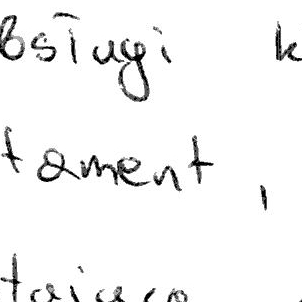 bsługi k
tament,